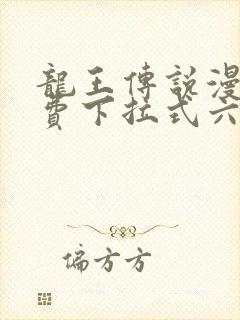 龍王傳說漫
費下拉式六
偏方方